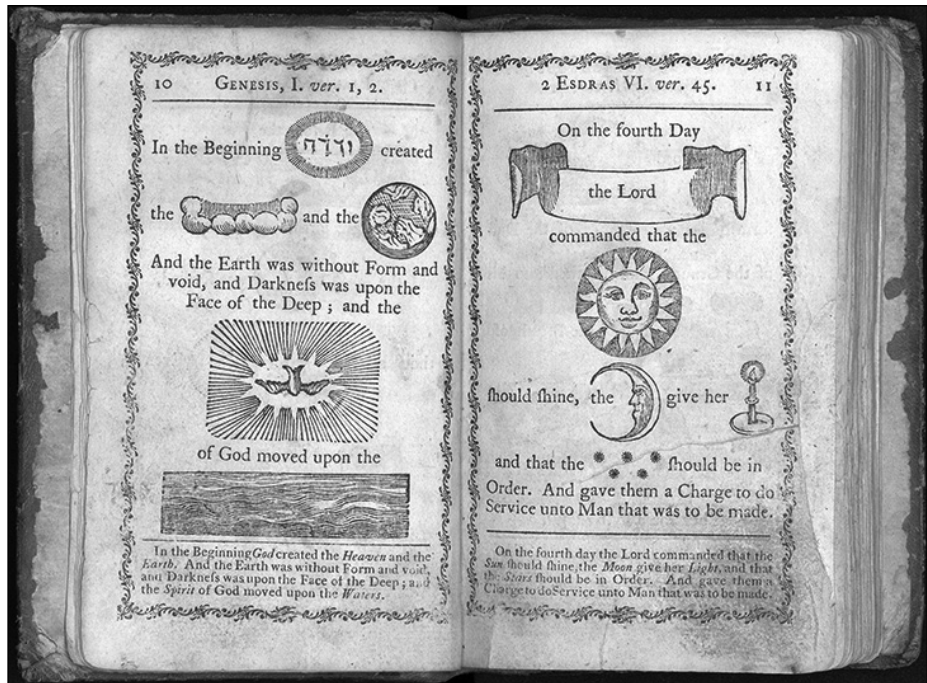 10 GENESIS, I. ver. 1, 2.
In the Beginning יהוה created
the and the
And the Earth was without Form and
void, and Darkneſs was upon the
Face of the Deep ; and the
of God moved upon the
In the Beginning God created the Heaven and the
Earth. And the Earth was without Form and void,
and Darkneſs was upon the Face of the Deep ; and
the Spirit of God moved upon the Waters.
2 ESDRAS VI. ver. 45. 11
On the fourth Day
the Lord
commanded that the
ſhould ſhine, the give her
and that the ſhould be in
Order. And gave them a Charge to do
Service unto Man that was to be made.
On the fourth day the Lord commanded that the
Sun ſhould ſhine, the Moon give her Light, and that
the Stars ſhould be in Order. And gave them a
Charge to do Service unto Man that was to be made.